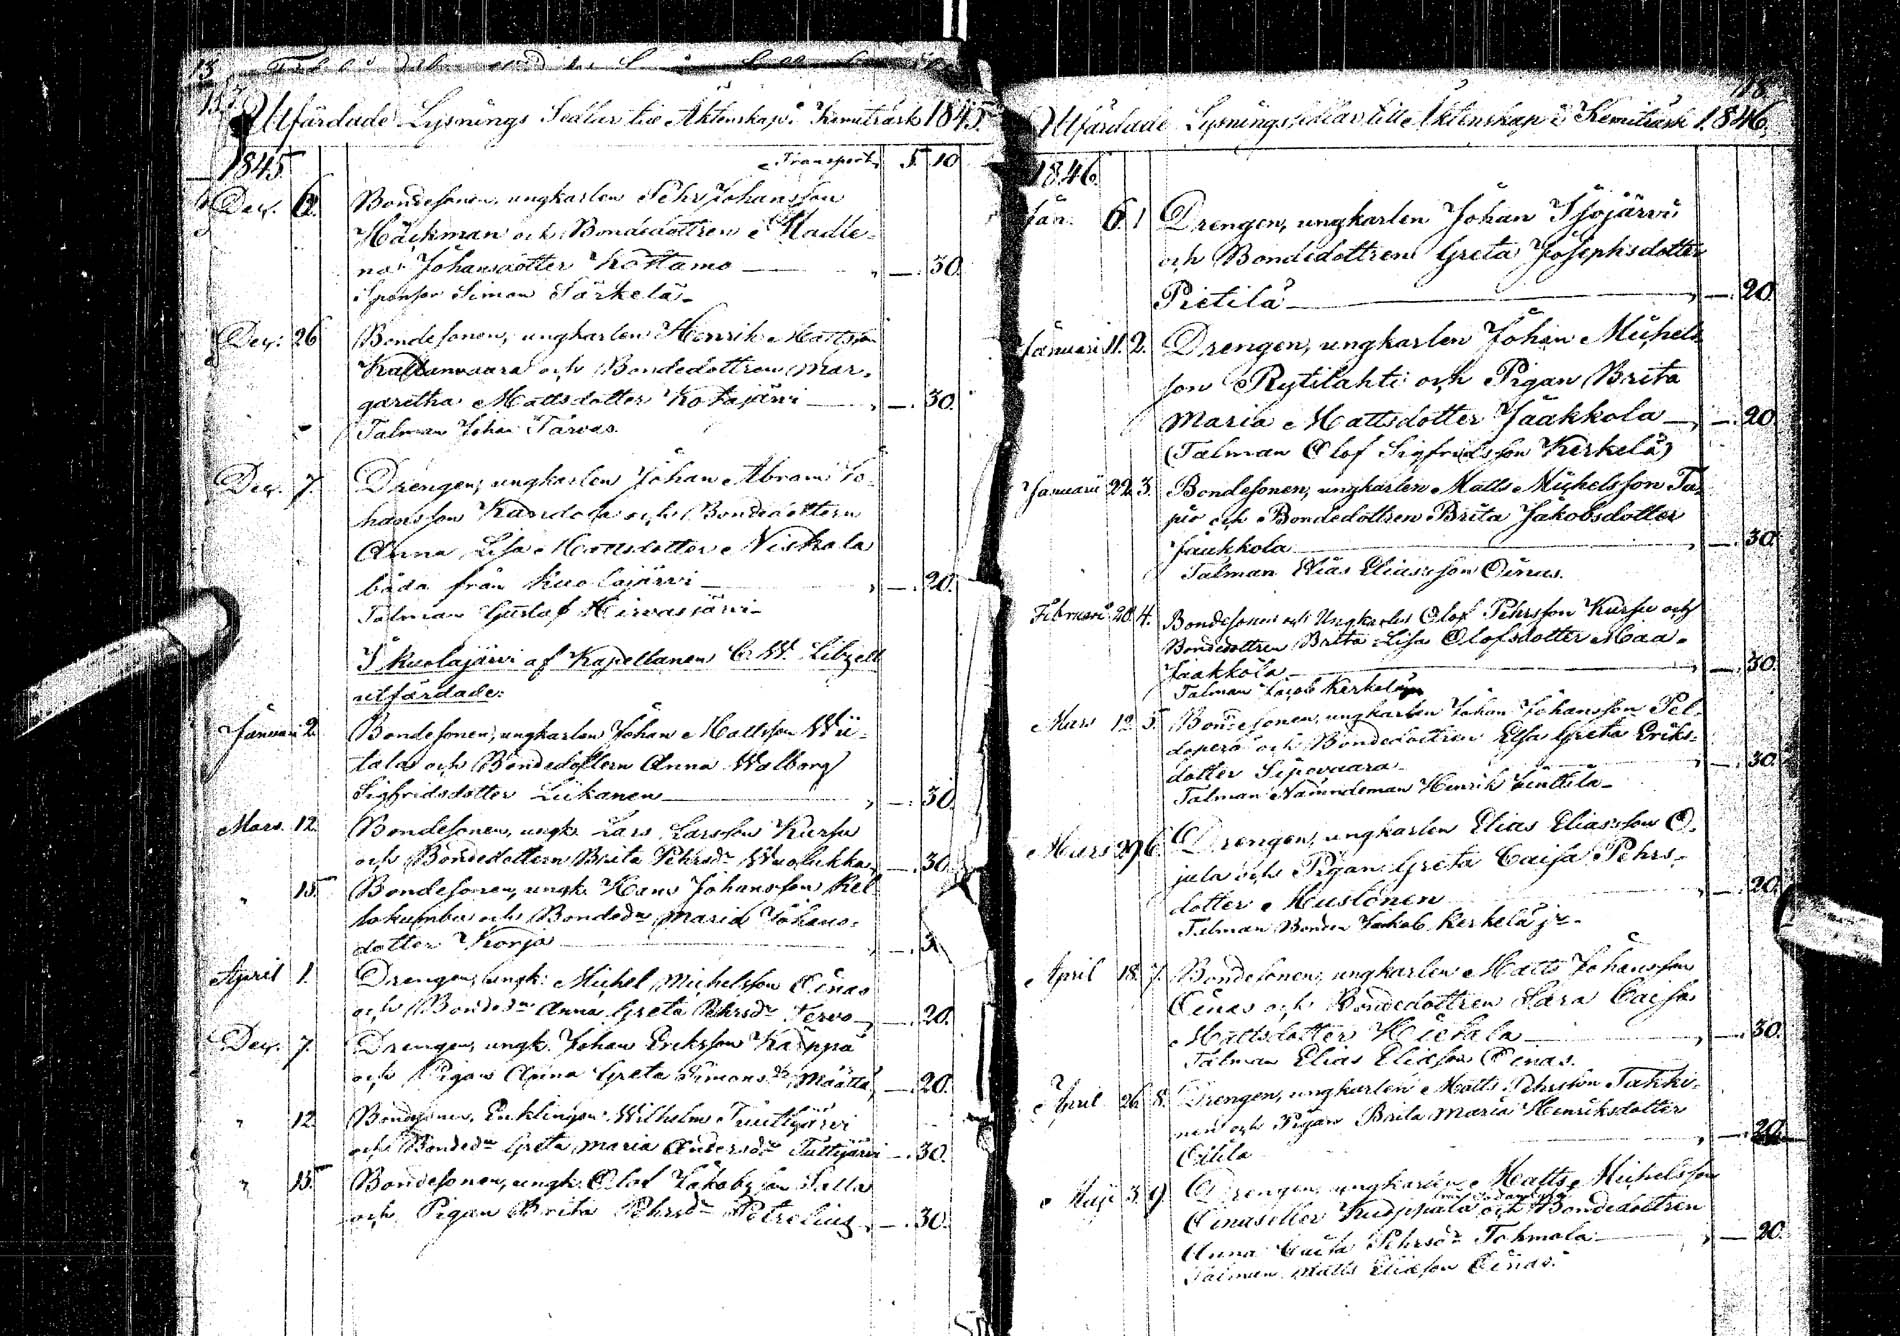 Utfärdade Lysnings Sedlar till Äktenskap i Kemiträsk 1845.
1845. Transport 5 10
Dec. 6. Bondesonen, ungkarlen Pehr Johansson
Häckman och Bondedottren Madle-
na Johansdotter Kostamo — " — . 30.
Sponsor Simon Särkelä
Dec. 26 Bondesonen, ungkarlen Henrik Mattsson
Kallunvaara och Bondedottren Mar-
garetha Mattsdotter Kotajärvi — " — . 30.
Talman Johan Tarvas.
Dec. 7. Drengen, ungkarlen Johan Abram Jo-
hansson Kandola och Bondedottern
Anna Lisa Mattsdotter Niskala
båda från Kuolajärvi — " — . 20.
Talman Gustaf Hirvasjärvi
I Kuolajärvi af Kapellanen C. W. Liljzell
utfärdade:
Januari 2. Bondesonen, ungkarlen Johan Mattsson Wii-
tala och Bondedottern Anna Walborg
Sigfridsdotter Liikanen — " — . 30.
Mars 12. Bondesonen, ungk. Lars Larsson Kursu
och Bondedottern Brita Pehrsdr — . 30.
" 15. Bondesonen, ungk. Hans Johansson Kel-
lokumbu och Bondedr Maria Johans-
dotter Korja — " — . 3
April 1. Drengen, ungk. Michel Michelsson Oinas
och Bondedr Anna Greta Pehrsdr Tervo — . 20.
Dec. 7. Drengen, ungk. Johan Eriksson Karppa
och Pigan Anna Greta Simonsdr Määttä, — . 20.
" 12. Bondesonen, Enklingen Wilhelm Tuuttijärvi
och Bondedr Greta Maria Andersdr Tuttijärvi — . 30.
" 15. Bondesonen, ungk. Olof Jakobsson Salla
och Pigan Brita Pehrsdr Petrelius — . 30.
118
Utfärdade Lysnings sedlar till Äktenskap i Kemiträsk 1846.
1846.
Jan. 6. 1 Drengen, ungkarlen Johan Isojärvi
och Bondedottren Greta Josephsdotter
Pietilä — " — . 20.
Januari 11. 2. Drengen, ungkarlen Johan Michels-
son Rytilahti och Pigan Brita
Maria Mattsdotter Jaakkola — " — . 20.
(Talman Olof Sigfridsson Kerkelä)
Januari 22. 3. Bondesonen, ungkarlen Matts Michelsson Ta-
pio och Bondedottren Brita Jakobsdotter
Jaukkola — " — . 30.
Talman Elias Eliasson Oinas.
Februari 20. 4. Bondesonen och Ungkarlen Olof Pehrsson Kursu och
Bondedottren Brita Lisa Olofsdotter Maa-
Jaakkola — " — . 30.
Talman Jacob Kerkelä
Mars 12 5. Bondesonen, ungkarlen Johan Johansson Pel-
doperä och Bondedottren Elsa Greta Eriks-
dotter Sipovaara — " — . 30.
Talman Nämndeman Henrik Jänttilä
Mars 29 6. Drengen, ungkarlen Elias Eliasson O-
jula och Pigan Greta Caisa Pehrs-
dotter Mustonen — " — . 20.
Talman Bonden Jakob Kerkelä jr
April 18. 7. Bondesonen, ungkarlen Matts Johansson
Oinas och Bondedottren Sara Caisa
Mattsdotter Hietala — " — . 30.
Talman Elias Eliasson Oinas.
April 26. 8. Drengen, ungkarlen Matts Pehrsson Takki-
nen och Pigan Brita Maria Henriksdotter
— " — . 20.
Maji 3. 9. Drengen, ungkarlen Matts Michelsson
Oinas eller Kuoppala och Bondedottren
Anna Caisa Pehrsdr Tohmola — " — 20.
Talman Matts Eliasson Oinas.